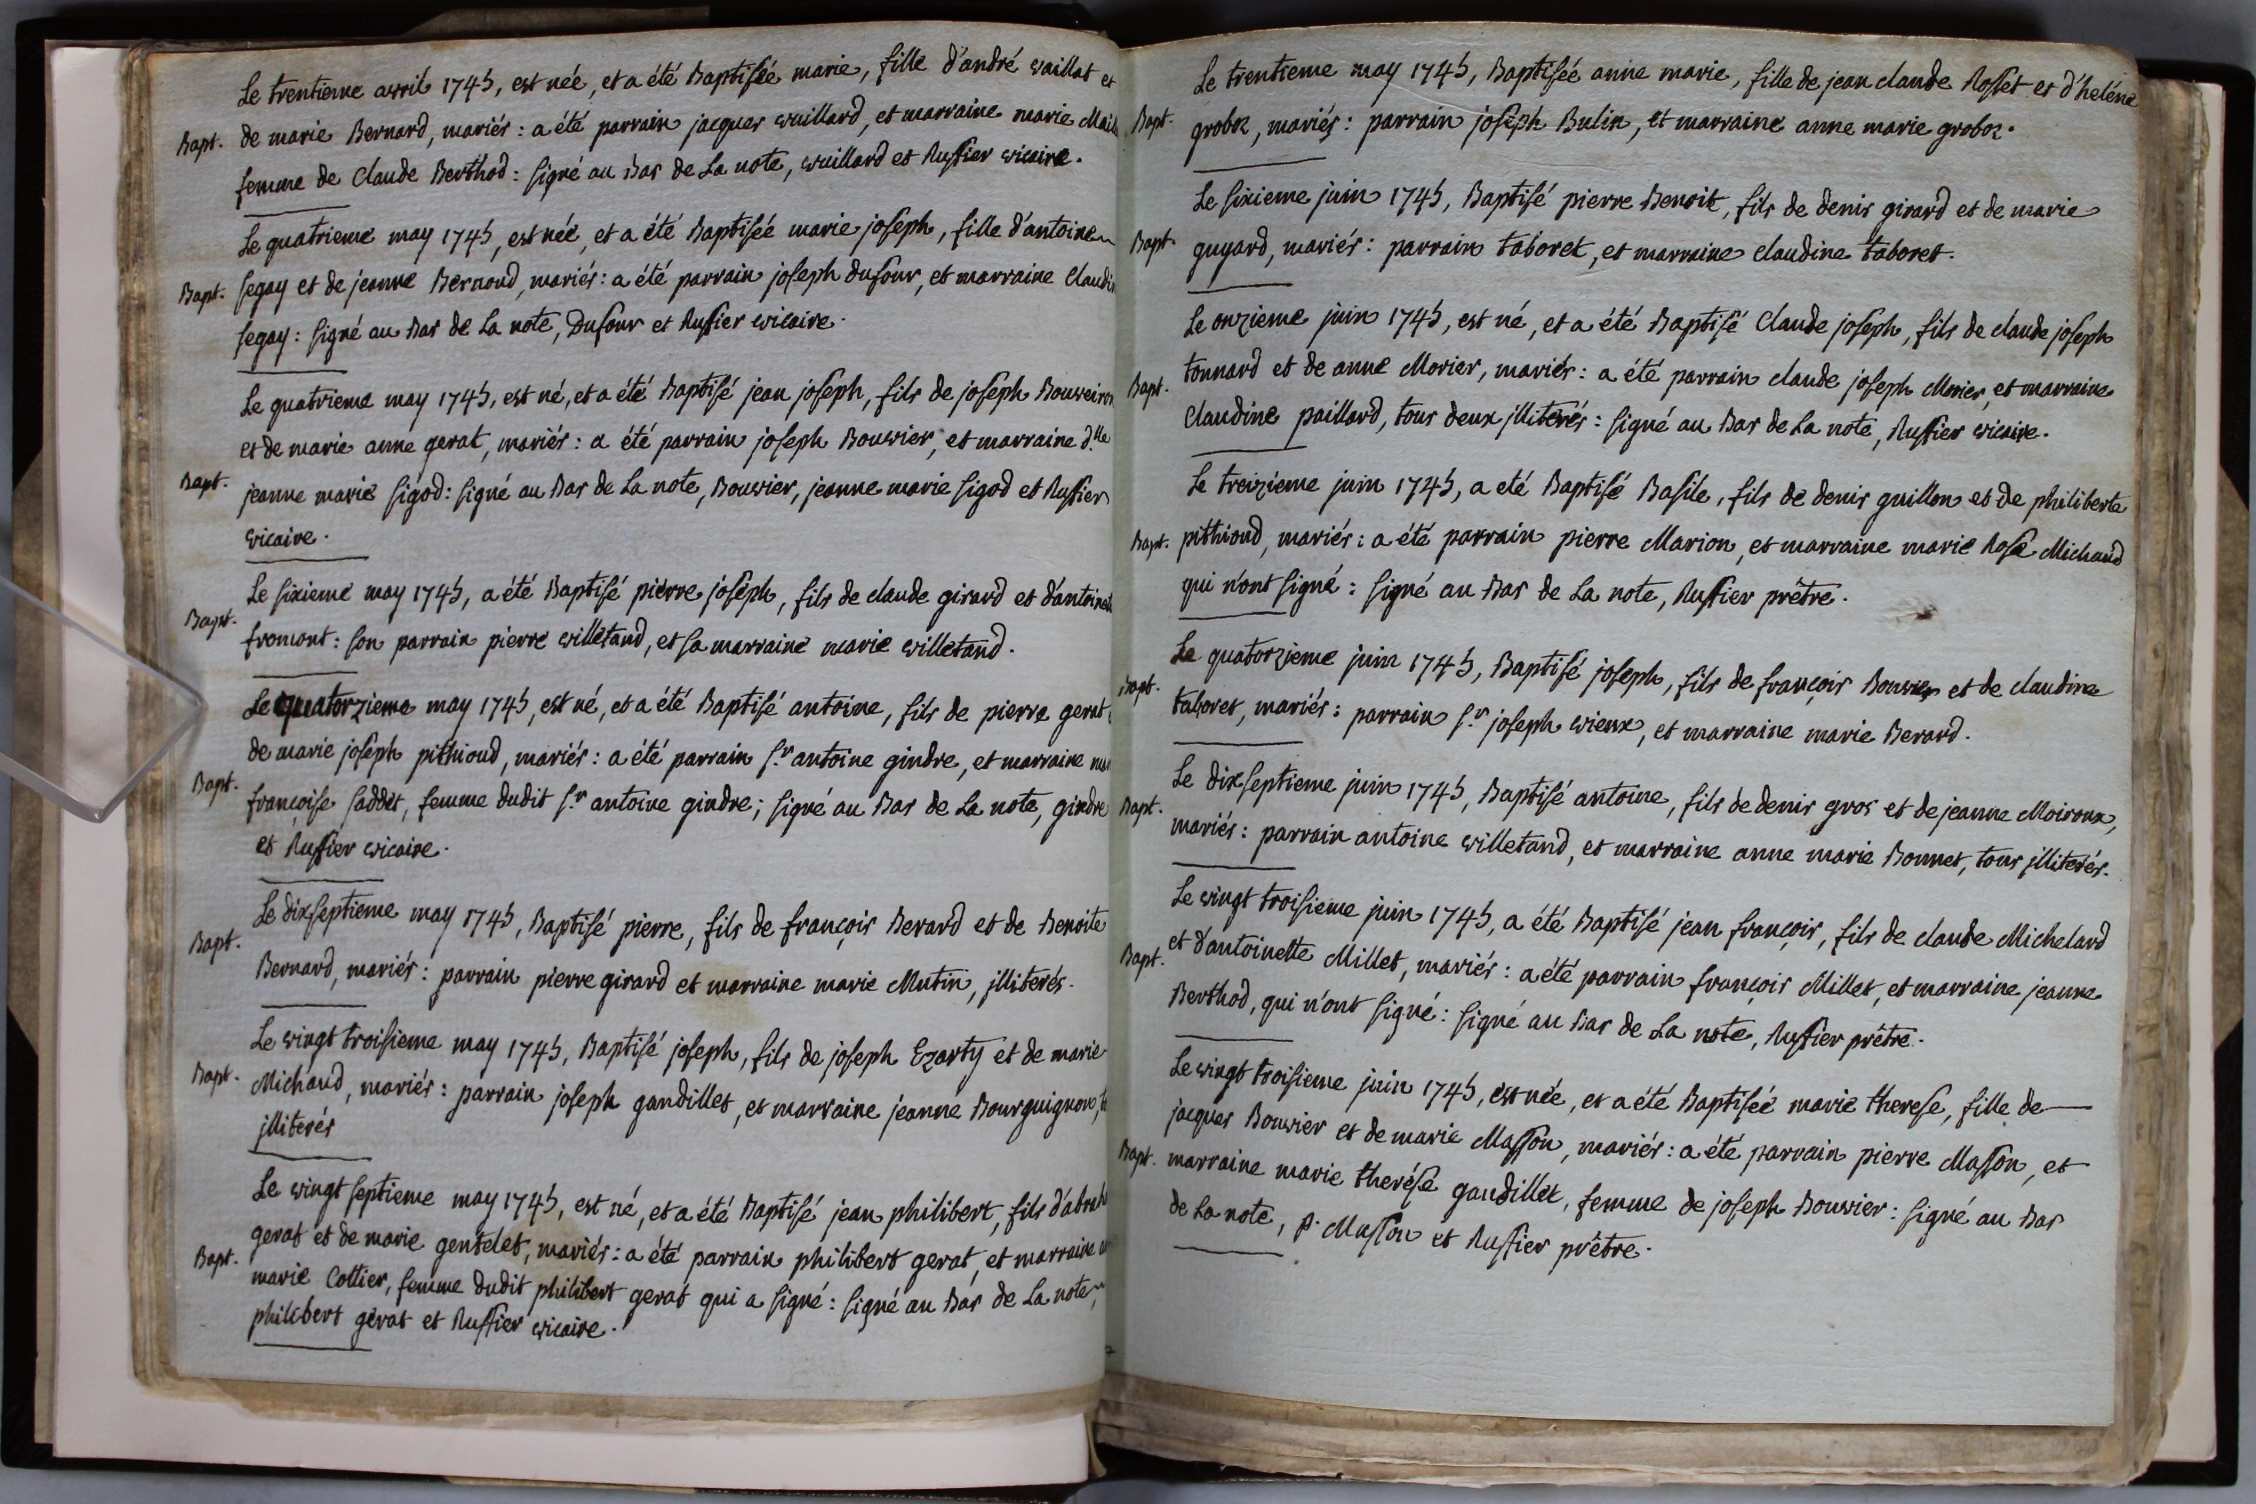 Le trentieme avril 1745, est née, et a été Baptisée marie, fille d'andré vaillat et
Bapt. de marie Bernard, mariés : a été parrain jacques vuillard, et marraine marie
femme de Claude Berthod : signé au Bas de La note, vuillard et Ruffier vicaire.
Le quatrieme may 1745, est née, et a été Baptisée marie joseph, fille d'antoine
Bapt. segay et de jeanne Bernoud, mariés : a été parrain joseph dufour, et marraine
segay : signé au Bas de La note, Dufour et Ruffier vicaire.
Le quatrieme may 1745, est né, et a été Baptisé jean joseph, fils de joseph
et de marie anne gerat, mariés : a été parrain joseph Bouvier, et marraine d.lle
Bapt. jeanne marie sigod : signé au Bas de La note, Bouvier, jeanne marie sigod et Ruffier
vicaire.
Le sixieme may 1745, a été Baptisé pierre joseph, fils de claude girard et
Bapt. fromont : son parrain pierre villetand, et sa marraine marie villetand.
Le quatorzieme may 1745, est né, et a été Baptisé antoine, fils de pierre gerat
de marie joseph pithioud, mariés : a été parrain s.r antoine gindre, et marraine
Bapt. françoise saddet, femme dudit s.r antoine gindre ; signé au Bas de La note, gindre
et Ruffier vicaire.
Le dixseptieme may 1745, Baptisé pierre, fils de françois Berard et de Benoite
Bapt. Bernard, mariés : parrain pierre girard et marraine marie Mutin, jlliterés.
Le vingt troisieme may 1745, Baptisé joseph, fils de joseph Ezarty et de marie
Bapt. Michaud, mariés : parrain joseph gandillet, et marraine jeanne Bourguignon,
jlliterés
Le vingt septieme may 1745, est né, et a été Baptisé jean philibert, fils
gerat et de marie gentelet, mariés : a été parrain philibert gerat, et marraine
Bapt. marie Cottier, femme dudit philibert gerat qui a signé : signé au Bas de La note,
philibert gerat et Ruffier vicaire.
Le trentieme may 1745, Baptisée anne marie, fille de jean claude Rosset et d'heléne
Bapt. groboz, mariés : parrain joseph Bulin, et marraine anne marie groboz.
Le sixieme juin 1745, Baptisé pierre Benoit, fils de denis girard et de marie
Bapt. guyard, mariés : parrain taboret, et marraine claudine taboret.
Le onzieme juin 1745, est né, et a été Baptisé Claude joseph, fils de claude joseph
Bapt. tonnard et de anne Morier, mariés : a été parrain claude joseph Morier, et marraine
Claudine paillard, tous deux jlliterés : signé au Bas de La note, Ruffier vicaire.
Le treizieme juin 1745, a eté Baptisé Basile, fils de denis guillon et de philiberte
Bapt. pithioud, mariés : a été parrain pierre Marion, et marraine marie Rose Michaud
qui n'ont signé : signé au Bas de La note, Ruffier prêtre.
Le quatorzieme juin 1745, Baptisé joseph, fils de françois Bouvier et de claudine
Bapt. taboret, mariés : parrain s.r joseph vieux, et marraine marie Berard.
Le dixseptieme juin 1745, Baptisé antoine, fils de denis gros et de jeanne Moiroux,
Bapt. mariés : parrain antoine villetand, et marraine anne marie Bonnet, tous jlliterés.
Le vingt troisieme juin 1745, a été Baptisé jean françois, fils de claude Michelard
Bapt. et d'antoinette Millet, mariés : a été parrain françois Millet, et marraine jeanne
Berthod, qui n'ont signé : signé au Bas de La note, Ruffier prêtre.
Le vingt troisieme juin 1745, est née, et a été Baptisée marie therese, fille de
jacques Bouvier et de marie Masson, mariés : a été parrain pierre Masson, et
Bapt. marraine marie therése gandillet, femme de joseph Bouvier : signé au Bas
de La note, P. Masson et Ruffier prêtre.